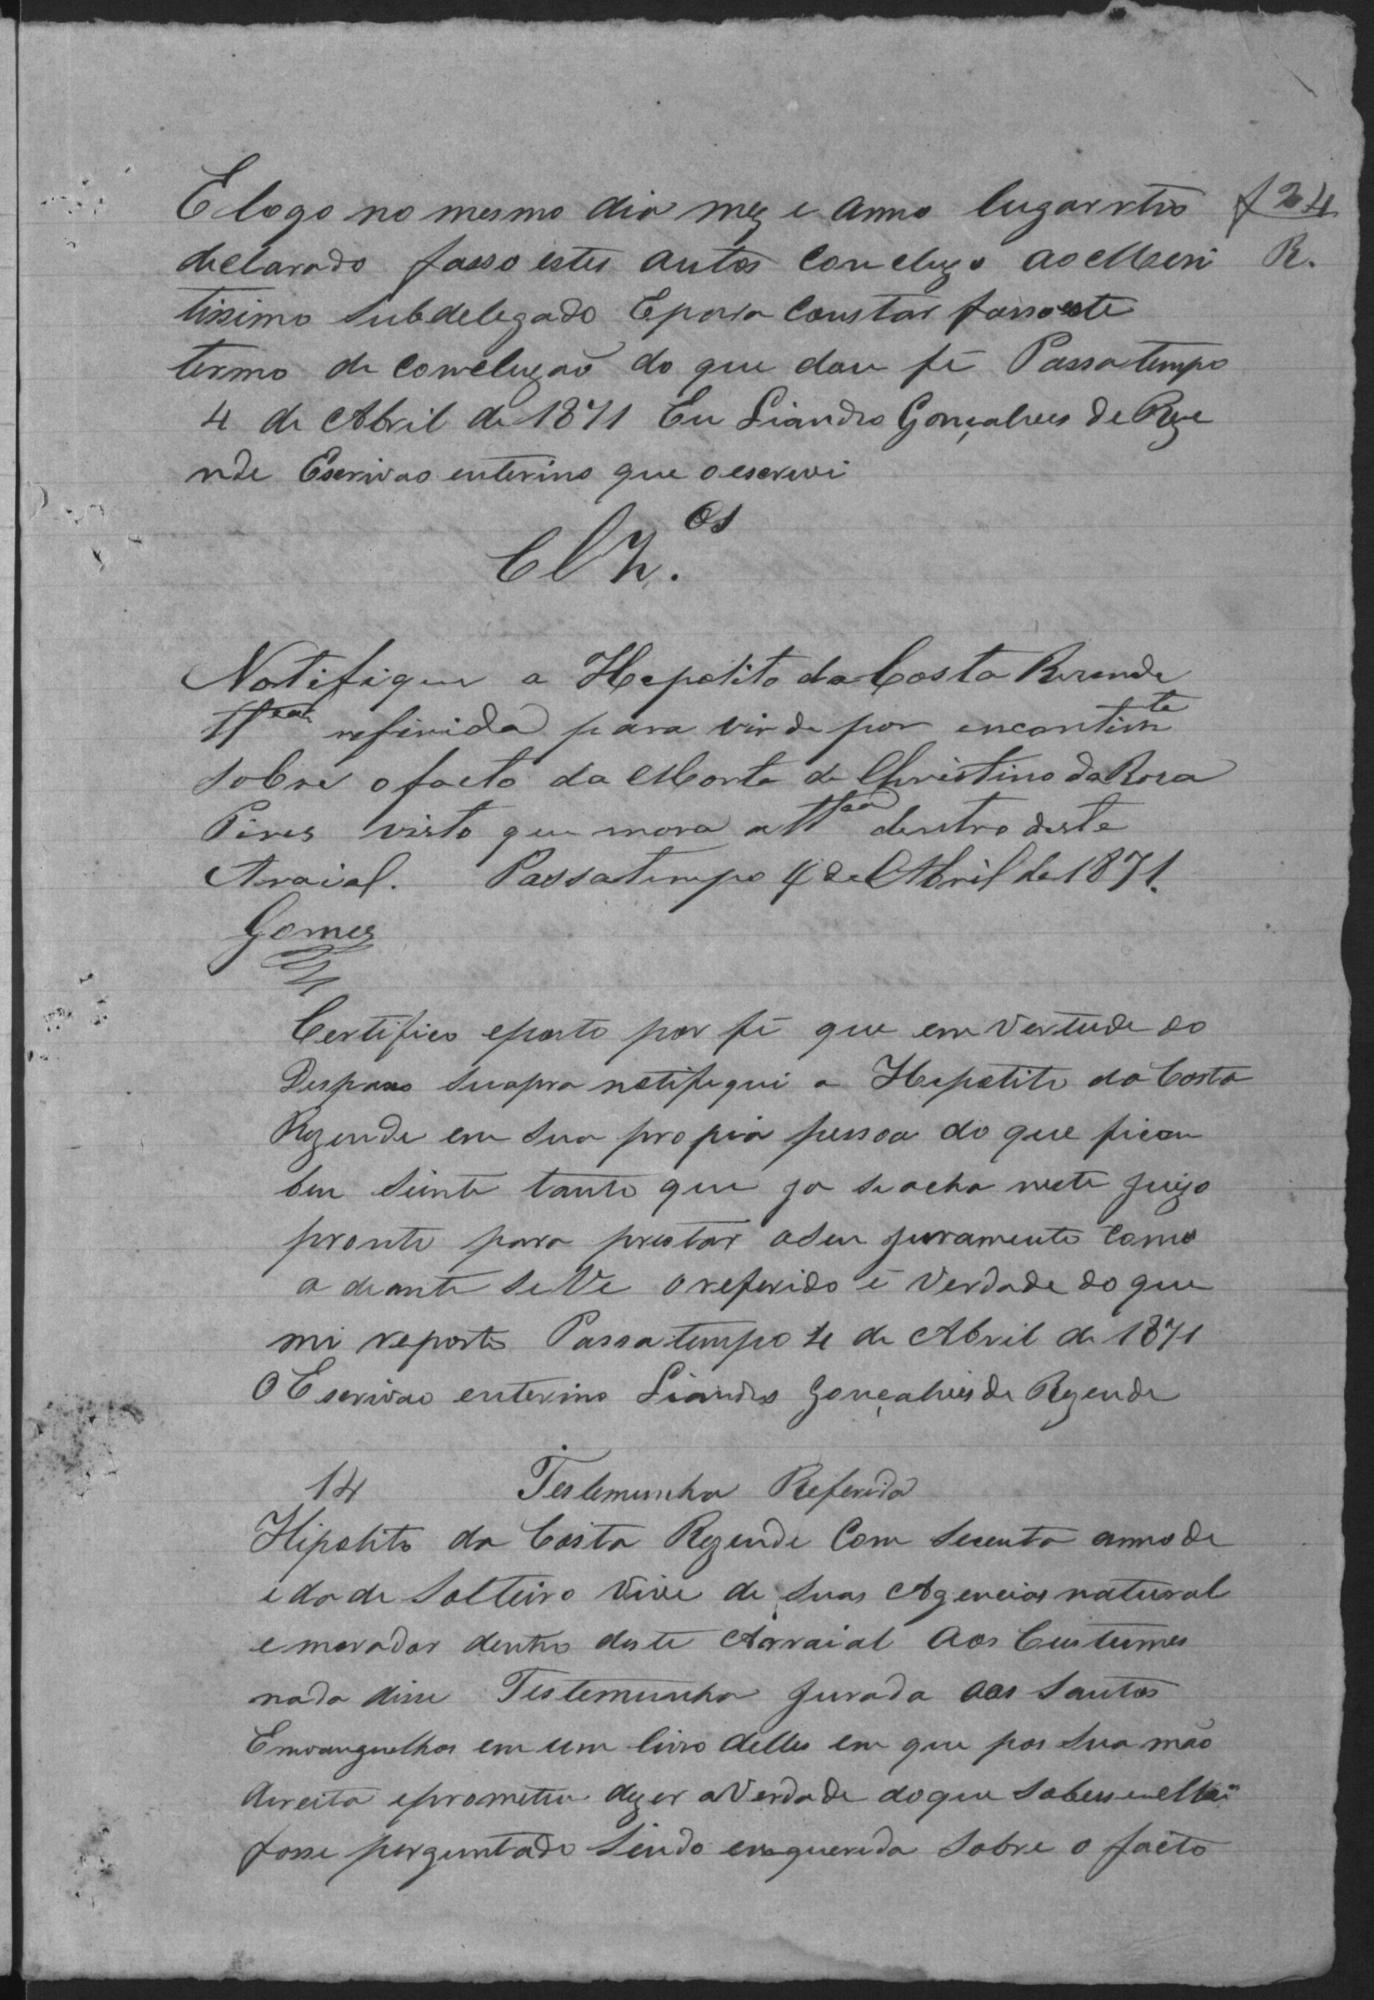 E logo no mesmo dia mez e anno lugar rtro
declarado fasso estes autos concluzo ao Meri
tissimo Subdelegado E para constar fasso este
termo de concluzão do que dou fé Passatempo
4 de Abril de 1871 Eu Liandro Gonçalves de Reze
nde Escrivao enterino que o escrevi
f 24
R.
Clz.os
Notifique a Hepolito da Costa Resende
tt.a referida para vir depor encontinte
sobre o facto da Morte de Christino da Rosa
Pires visto que mora a tt.a dentro deste
Araial. Passatempo 4 de Abril de 1871.
Gomes
Certifico eporto por fé que em Vertude do
Despaxo Suapra notifequei a Hepolito da Costa
Rezende em sua propia pessoa do que ficou
bem Siente tanto que ja se acha neste juizo
pronto para prestar oseu juramento como
a deante seVe o referido é Verdade do que
mi reporto Passatempo 4 de Abril de 1871
O Escrivao enterino Liandro Gonçalves de Rezende
14 Testemunha Referida
Hipolito da Costa Rezende Com Secenta annos de
idade Solteiro Vive de suas Agencias natural
e morador dentro deste Arraial Aos Custumes
nada disse Testemunha jurada aos Santos
Emvanguelhos em um livro delles em que pos sua mão
direita eprometeu dizer a Verdade doque Soubesse
fosse perguntado Sendo enquerida Sobre o facto